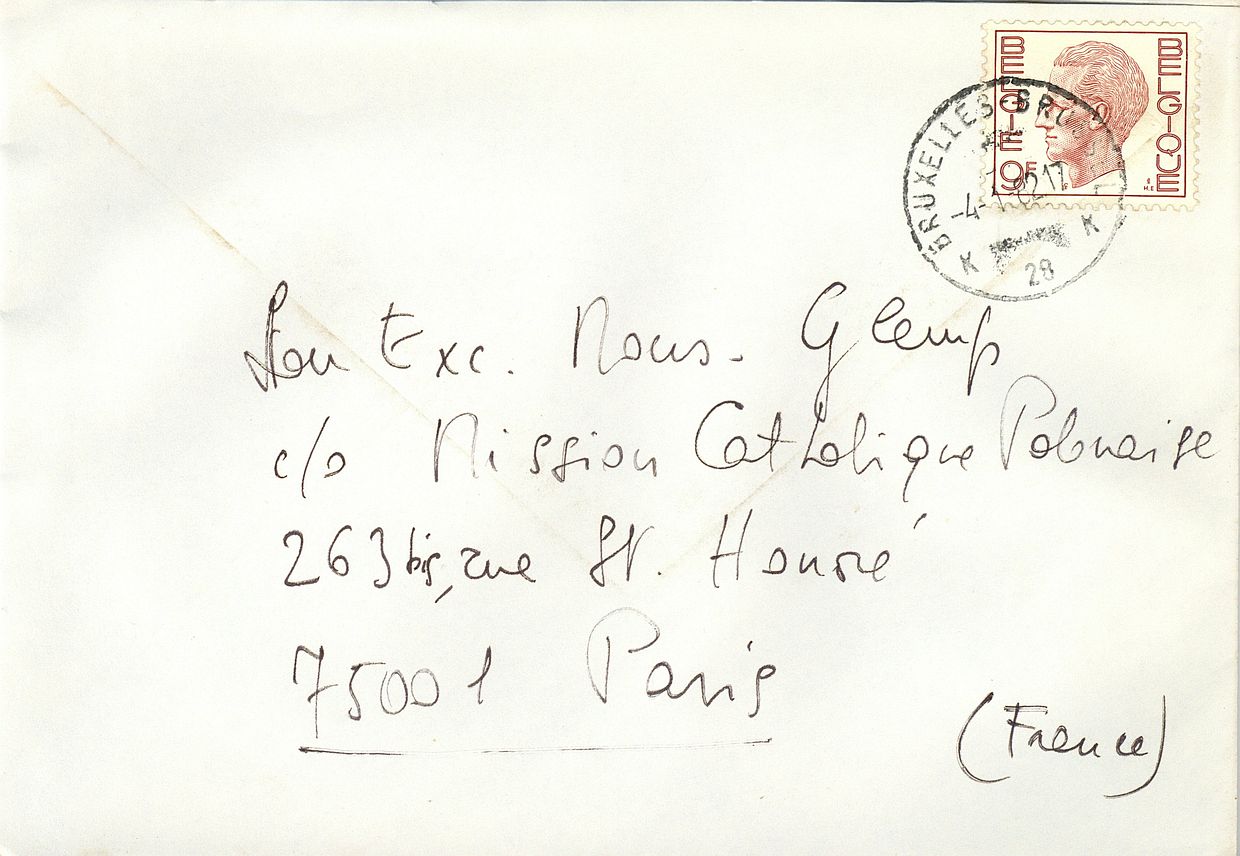 BELGIE BELGIQUE
9F
BRUXELLES-BRU
-4-1-82 17
K K
28
Son Exc. Mons. Glemp
c/o Mission Catholique Polonaise
263 bis, rue St. Honoré
75001 Paris
(France)